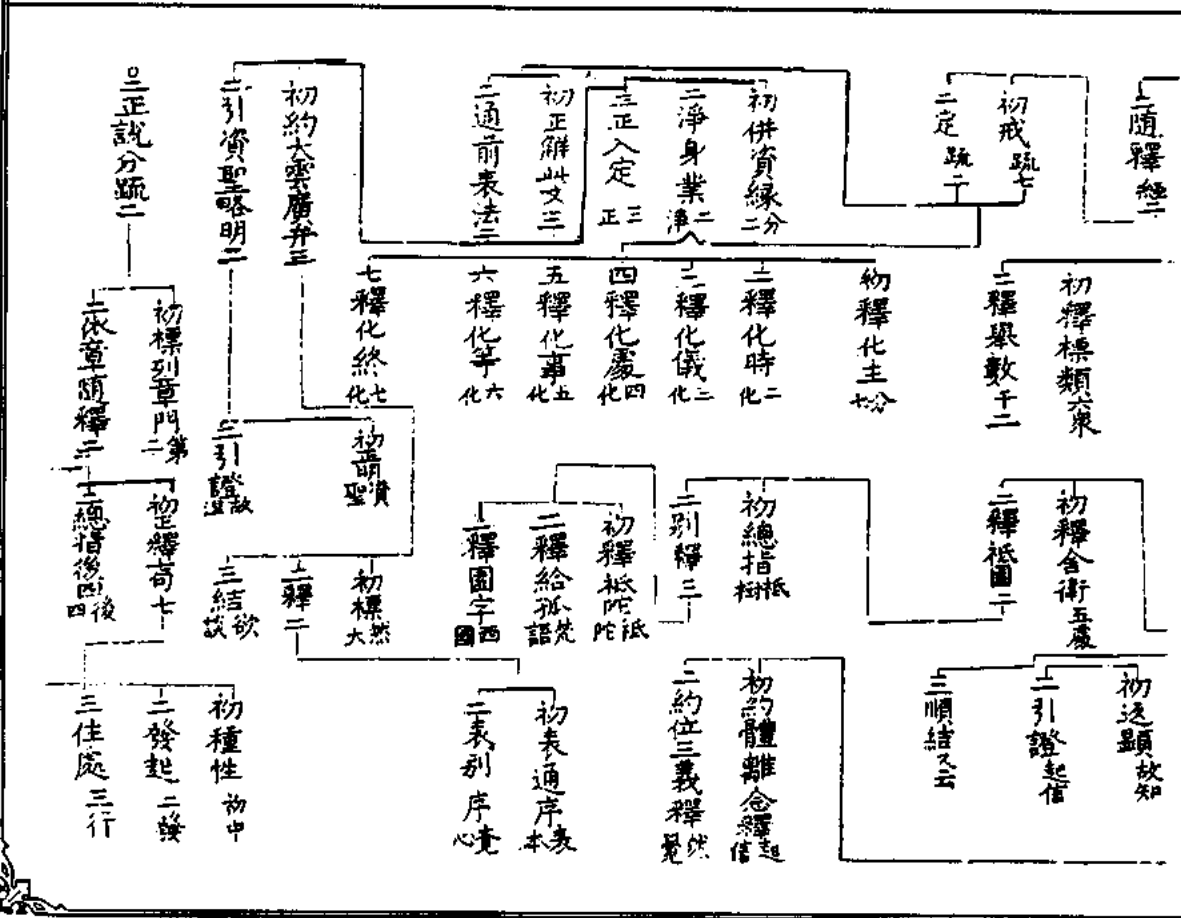 二隨釋經二
初戒疏七
二定疏二
初併資緣分二
二淨身業二淨
三正入定三正
初正解此文三
二通前表法二
初約大雲廣弁三
二引資聖略明二
三正說分疏二
初釋標類六衆
二釋舉數千二
初釋化主分七
二釋化時二化
三釋化儀三化
四釋化處四化
五釋化事五化
六釋化等六化
七釋化終七化
初明資聖
二引證故
初標列章門第二
二依章随釋二
初釋舍衛五處
二釋祇園二
初總指祇樹
二別釋三
初釋祇陀祇陀
二釋給孤梵語
三釋園字西國
初標然大
二釋二
三結欲談
初正釋前七
二總指後四後四
初返顯故知
二引證起信
三順結又云
初約體離念釋起信
二約位三義釋然覺
初表通序表本
二表別序覺心
初種性初中
二發起二發
三住處三行